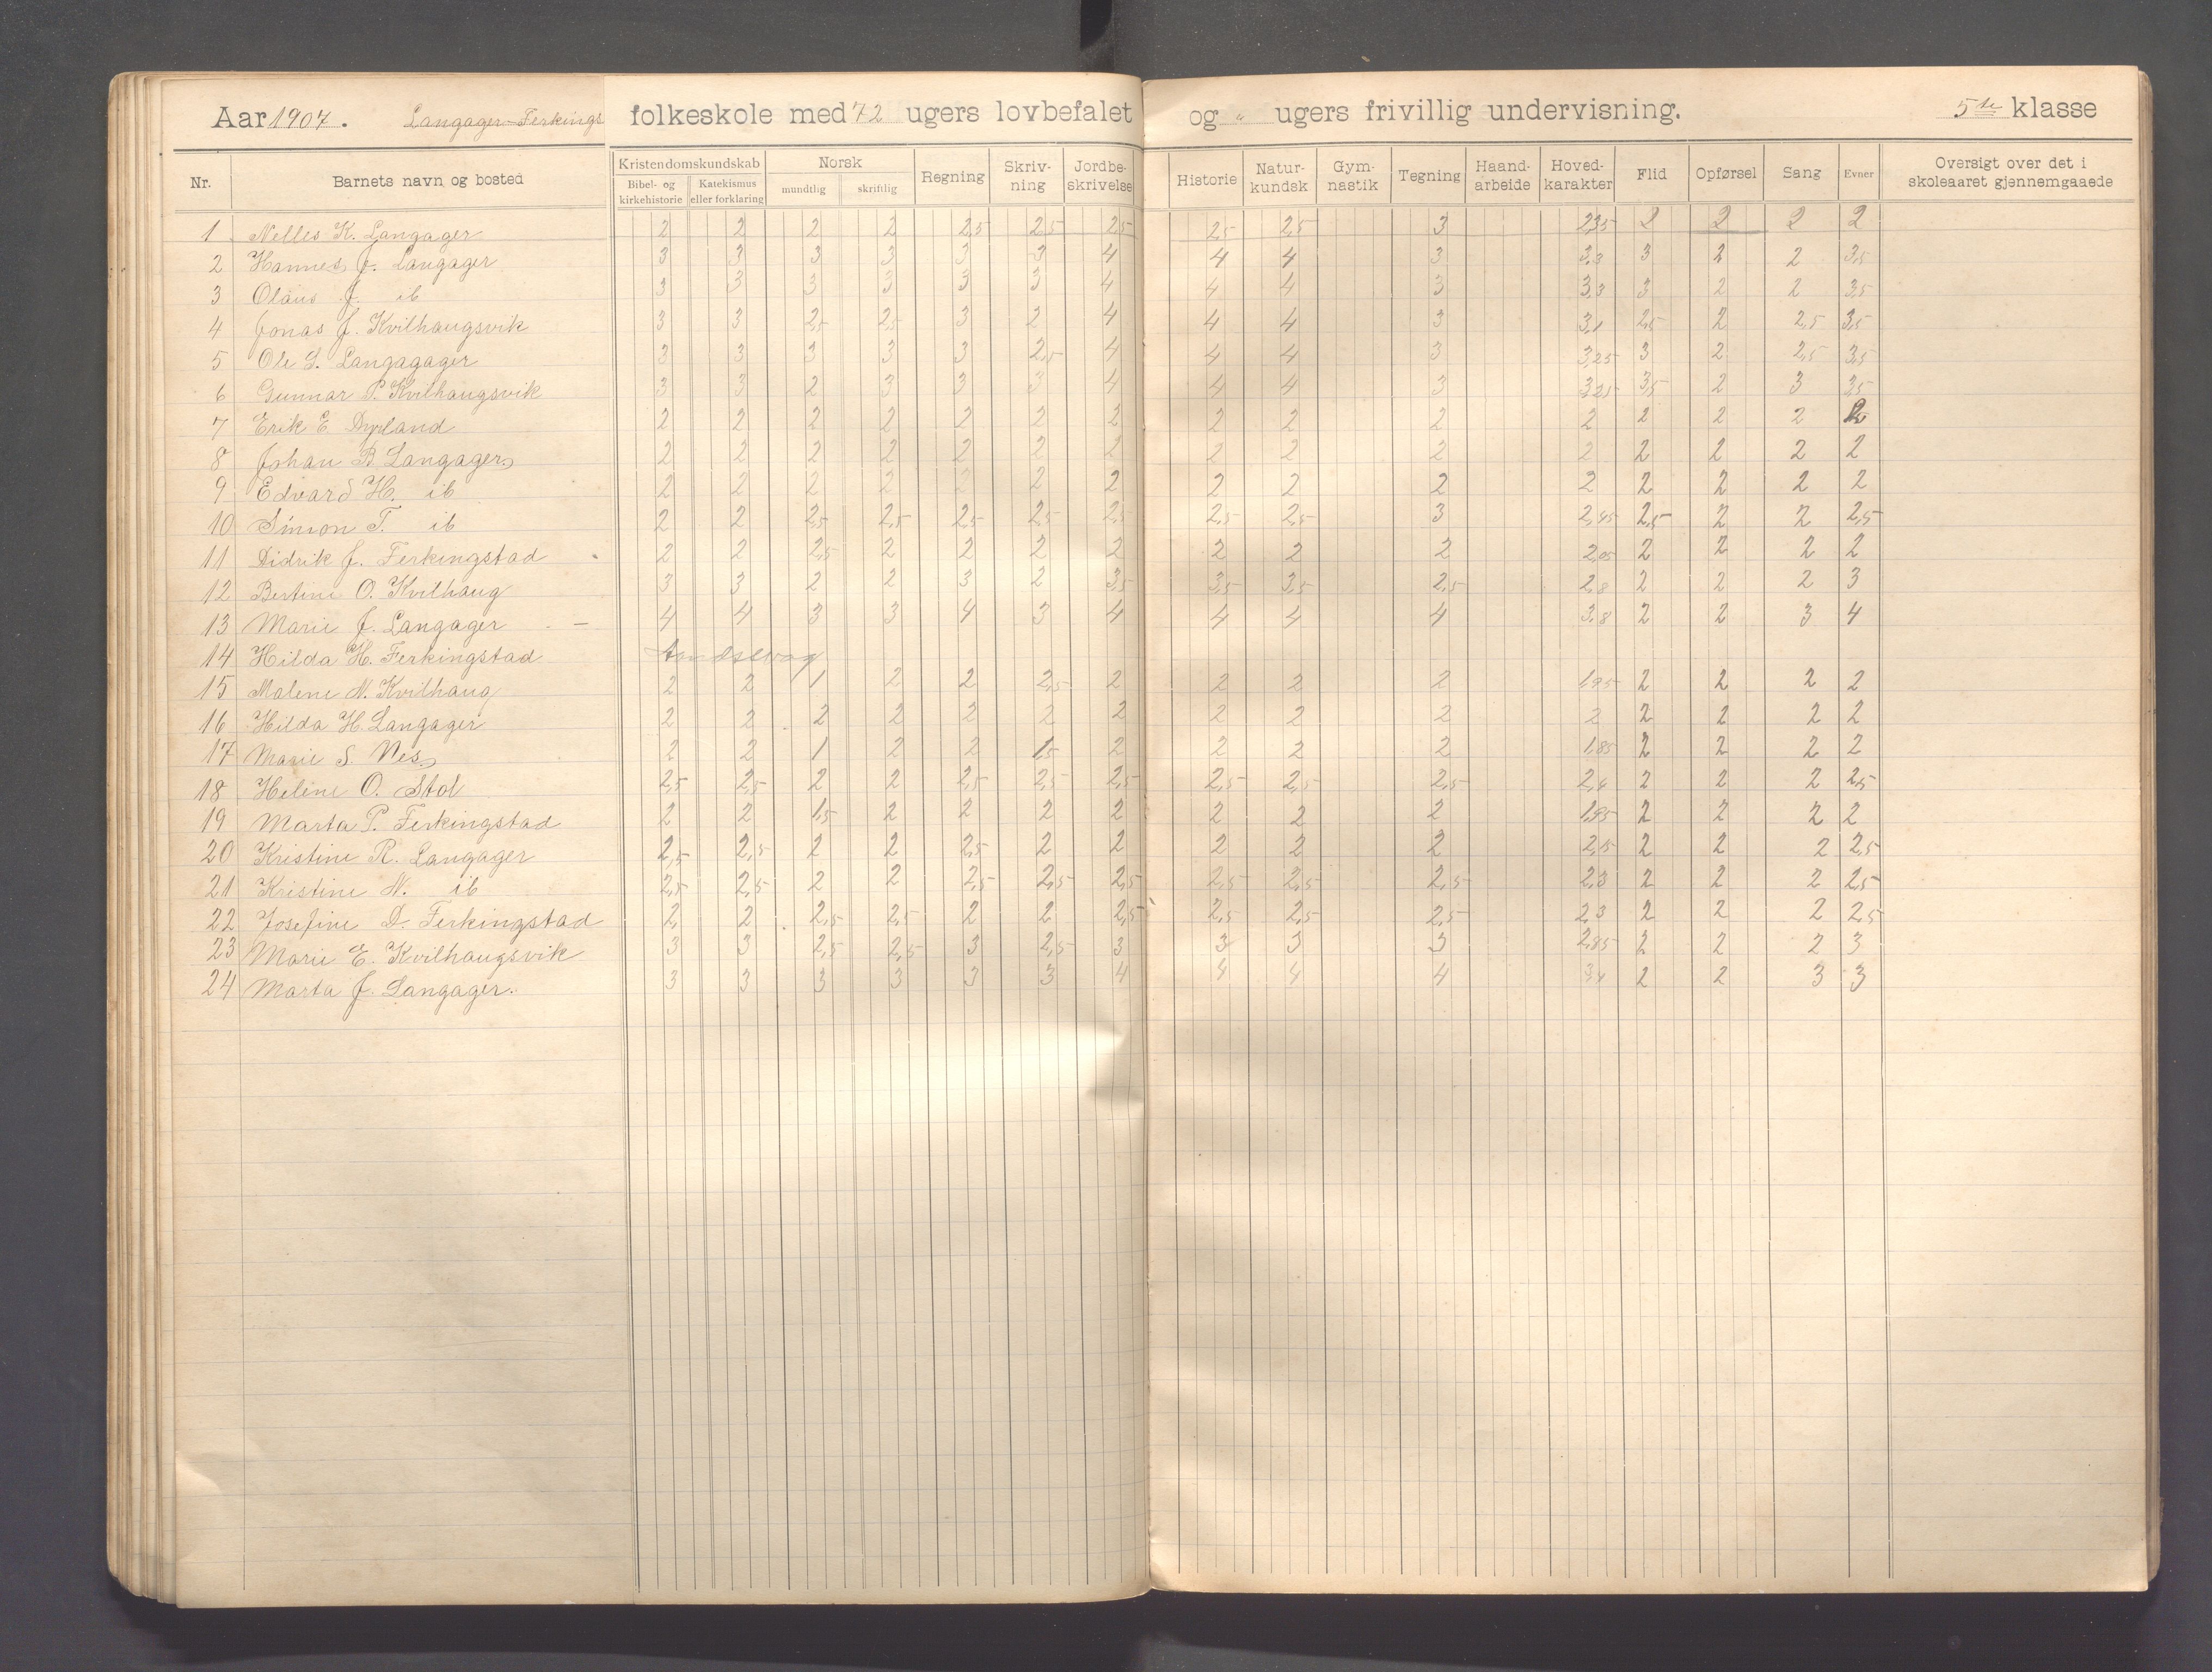 Aar 1907. Langager-Ferkings folkeskole med 72 ugers lovbefalet og " ugers frivillig undervisning. 5te klasse
Nr. Barnets navn og bosted Kristendomskundskab Bibel- og kirkehistorie Katekismus eller forklaring Norsk mundtlig skriftlig Regning Skriv-ning Jordbe-skrivelse Historie Natur-kundsk Gym-nastik Tegning Haand-arbeide Hoved-karakter Flid Opførsel Sang Evner Oversigt over det i skoleaaret gjennemgaaede
1 Nelles K. Langager 2 2 2 2 2,5 2,5 2,5 2,5 2,5 3 2,35 2 2 2 2
2 Hannes J. Langager 3 3 3 3 3 3 4 4 4 3 3,3 3 2 2 3,5
3 Olaus J. ib 3 3 3 3 3 3 4 4 4 3 3,3 3 2 2 3,5
4 Jonas J. Kvilhaugsvik 3 3 2,5 2,5 3 2 4 4 4 3 3,1 2,5 2 2,5 3,5
5 Ole S. Langagager 3 3 3 3 3 2,5 4 4 4 3 3,25 3 2 2,5 3,5
6 Gunnar P. Kvilhaugsvik 3 3 2 3 3 3 4 4 4 3 3,25 3,5 2 3 3,5
7 Erik E. Dyrland 2 2 2 2 2 2 2 2 2 2 2 2 2 2 2
8 Johan B Langager 2 2 2 2 2 2 2 2 2 2 2 2 2 2 2
9 Edvard H. ib 2 2 2 2 2 2 2 2 2 2 2 2 2 2 2
10 Simon T. ib 2 2 2,5 2,5 2,5 2,5 2,5 2,5 2,5 3 2,45 2,5 2 2 2,5
11 Didrik J. Ferkingstad 2 2 2,5 2 2 2 2 2 2 2 2,05 2 2 2 2
12 Bertine O. Kvilhaug 3 3 2 2 3 2 3,5 3,5 3,5 2,5 2,8 2 2 2 3
13 Marie J. Langager 4 4 3 3 4 3 4 4 4 4 3,8 2 2 3 4
14 Hilda H. Ferkingstad
15 Malene N. Kvilhaug 2 2 1 2 2 2,5 2 2 2 2 1,95 2 2 2 2
16 Hilda H. Langager 2 2 2 2 2 2 2 2 2 2 2 2 2 2 2
17 Marie S. Nes 2 2 1 2 2 1,5 2 2 2 2 1,85 2 2 2 2
18 Heline O. Stol 2,5 2,5 2 2 2,5 2,5 2,5 2,5 2,5 2,5 2,4 2 2 2 2,5
19 Marta P. Ferkingstad 2 2 1,5 2 2 2 2 2 2 2 1,95 2 2 2 2
20 Kristine R. Langager 2,5 2,5 2 2 2,5 2 2 2 2 2 2,15 2 2 2 2,5
21 Kristine N. ib 2,5 2,5 2 2 2,5 2,5 2,5 2,5 2,5 2,5 2,3 2 2 2 2,5
22 Josefine D. Ferkingstad 2 2 2,5 2,5 2 2 2,5 2,5 2,5 2,5 2,3 2 2 2 2,5
23 Marie E. Kvilhaugsvik 3 3 2,5 2,5 3 2,5 3 3 3 3 2,85 2 2 2 3
24 Marta J. Langager. 3 3 3 3 3 3 4 4 4 4 3,4 2 2 3 3